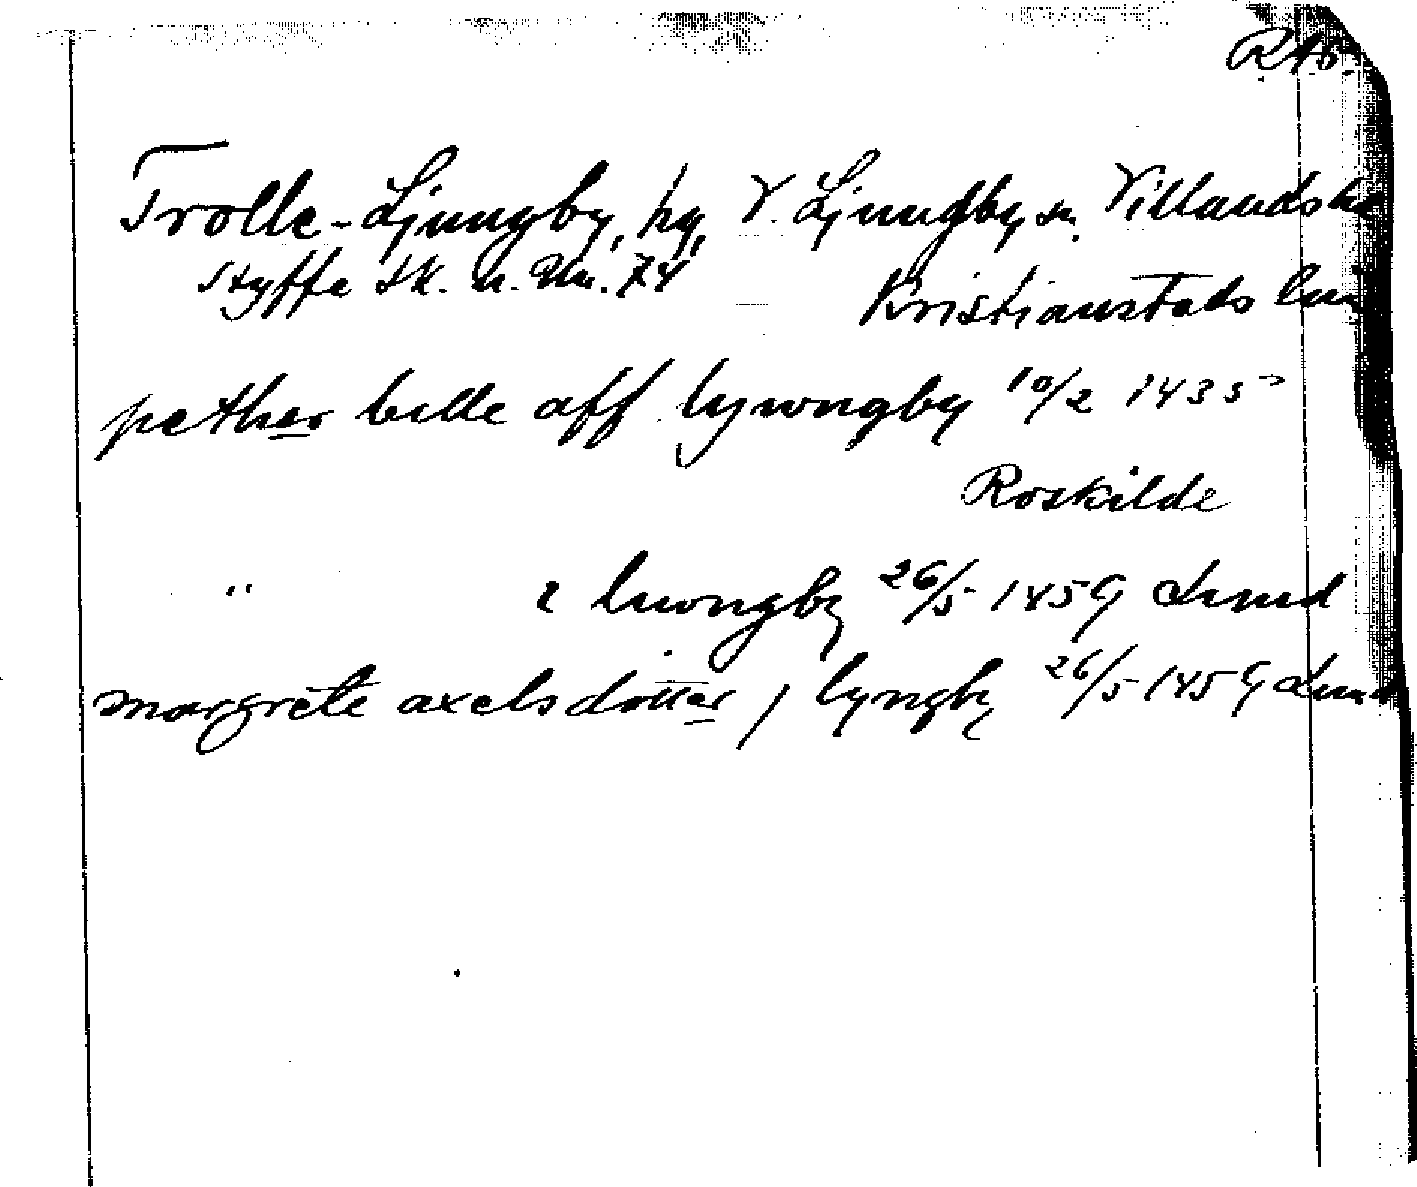 RAö.
Trolle-Ljungby, hg, V. Ljungby sn. Villands hd
Styffe Sk. u. Un. 74
Kristianstads län
pether bille aff lywngby 10/2 1435
Roskilde
" i liwngby 26/5 1459 Lund
margrete axelsdotter j lyngby 26/5 1459 Lund